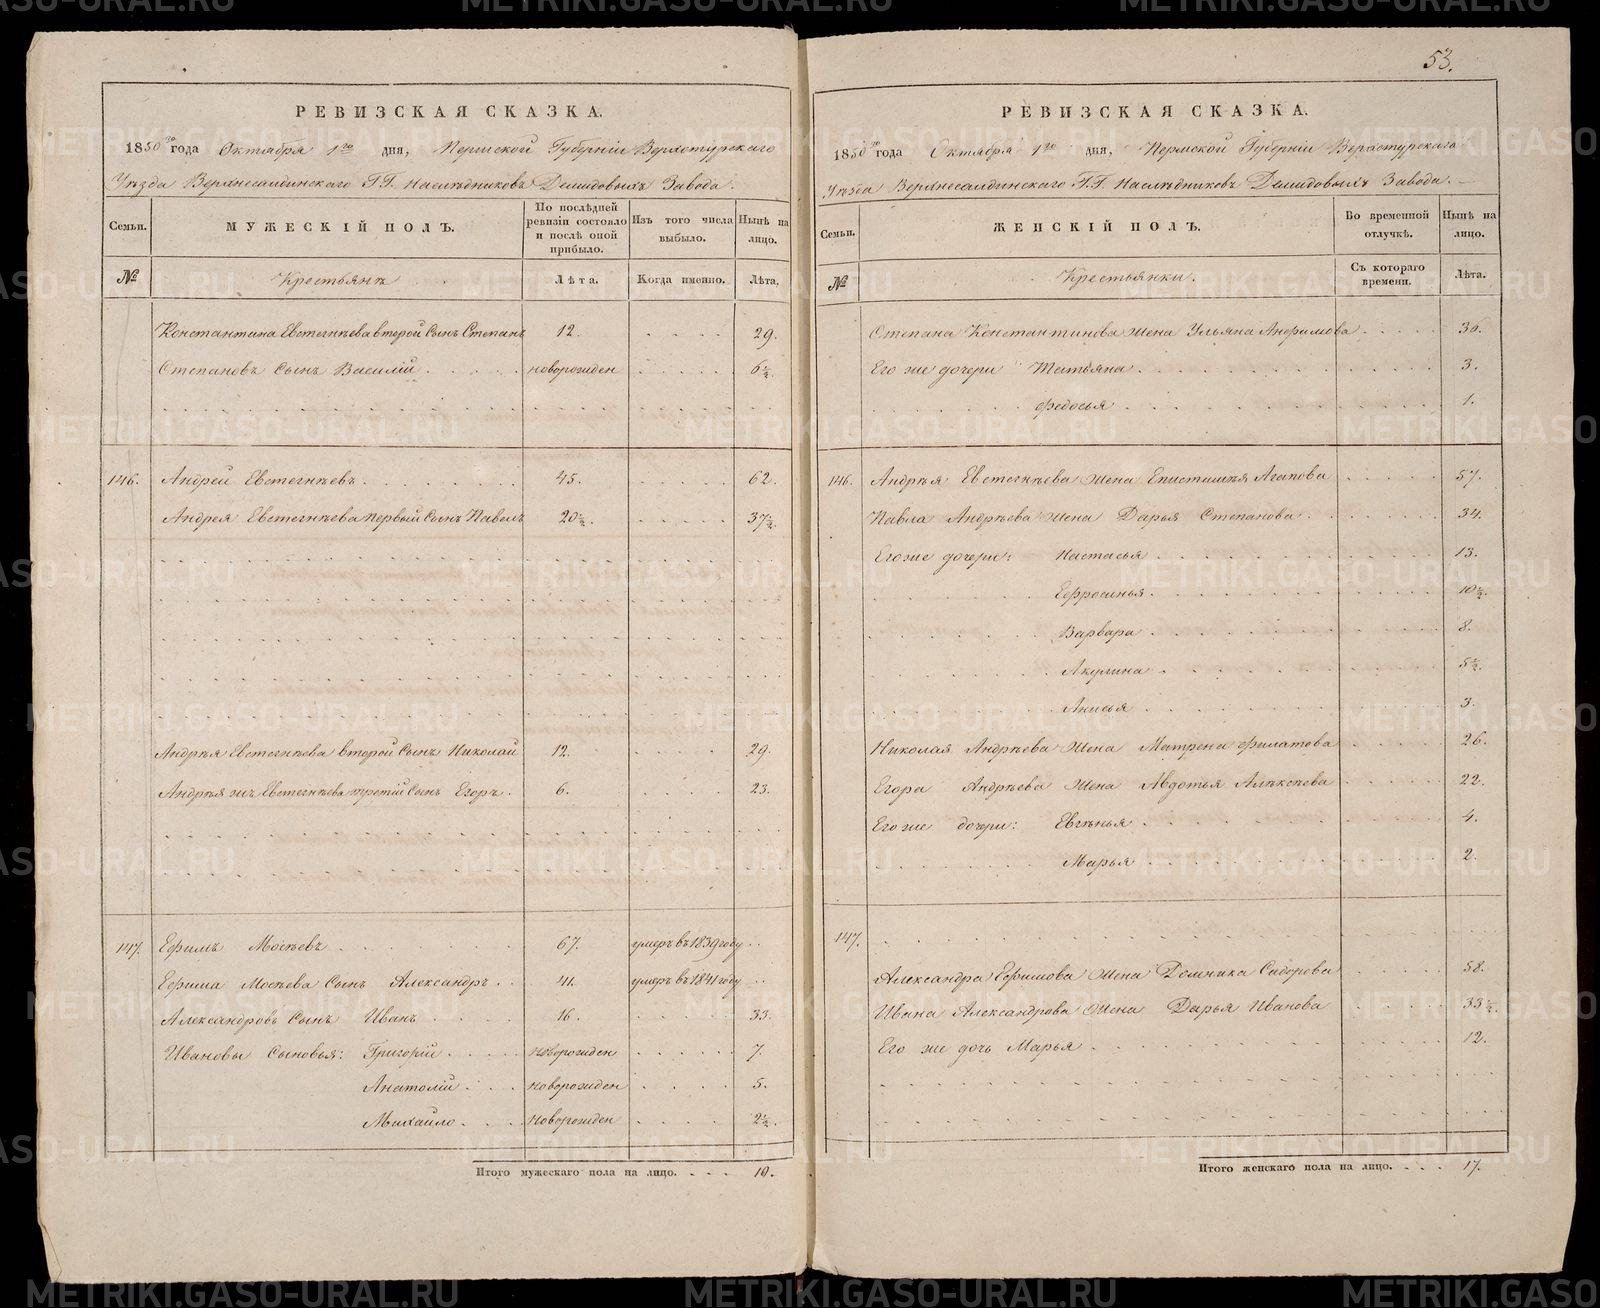 53.
РЕВИЗСКАЯ СКАЗКА.
1850го года Октября 1го дня, Пермской Губернiи Верхотурскаго
Уѣзда Верхнесалдинскаго Г.Г. Наслѣдниковъ Демидовыхъ Завода.
Семьи. МУЖЕСКIЙ ПОЛЪ. По послѣдней ревизiи состояло и послѣ оной прибыло. Изъ того числа выбыло. Нынѣ на лицо.
№ Крестьянъ Лѣта. Когда именно. Лѣта.
Константина Евстегнѣева второй Сынъ Степанъ 12. 29.
Степановъ Сынъ Василiй новорожден 6½.
146. Андрей Евстегнѣевъ 45. 62.
Андрея Евстегнѣева первый Сынъ Павелъ 20½. 37½.
Андрѣя Евстегнѣева второй Сынъ Николай 12. 29.
Андрѣя жъ Евстегнѣева третiй Сынъ Егоръ. 6. 23.
147. Ефимъ Мосѣевъ 67. умеръ въ 1839 году
Ефима Мосѣева Сынъ Александръ 41. умеръ въ 1841 году
Александровъ Сынъ Иванъ 16. 33.
Ивановы Сыновья: Григорiй новорожден 7.
Анатолiй новорожден 5.
Михайло новорожден 2½.
Итого мужескаго пола на лицо. 10.
РЕВИЗСКАЯ СКАЗКА.
1850го года Октября 1го дня, Пермской Губернiи Верхотурскаго
Уѣзда Верхнесалдинскаго Г.Г. Наслѣдниковъ Демидовыхъ Завода.
Семьи. ЖЕНСКIЙ ПОЛЪ. Во временной отлучкѣ. Нынѣ на лицо.
№ Крестьянки. Съ котораго времени. Лѣта.
Степана Константинова жена Ульяна Анфимова 36.
Его же дочери Татьяна 3.
Федосья 1.
146. Андрѣя Евстегнѣева жена Епистимѣя Агапова 57.
Павла Андрѣева жена Дарья Степанова 34.
Его же дочери: Настасья 13.
Ефросинья 10½.
Варвара 8.
Акулина 5½.
Анисья 3.
Николая Андрѣева жена Матрена Филатова 26.
Егора Андрѣева жена Авдотья Алѣксѣева 22.
Его же дочери: Евгѣнья 4.
Марья 2.
147.
Александра Ефимова жена Домника Сидорова 58.
Ивана Александрова жена Дарья Иванова 33½.
Его же дочь Марья 12.
Итого женскаго пола на лицо. 17.
METRIKI.GASO-URAL.RU